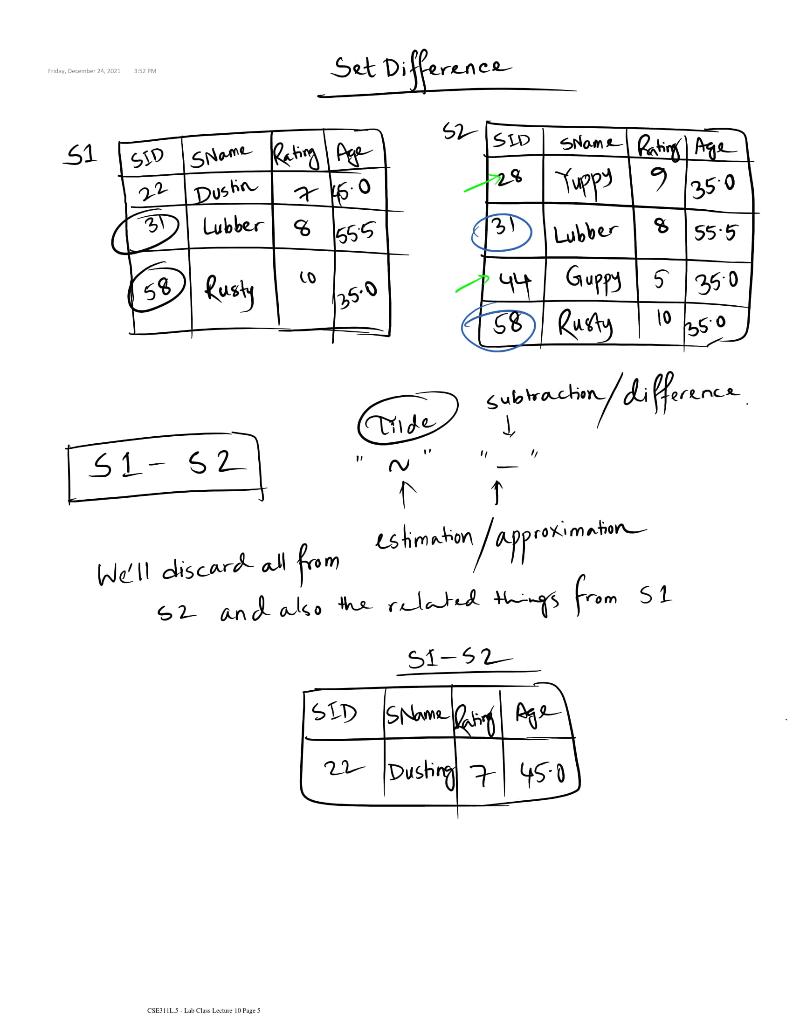 Friday, December 24, 2021 3:52 PM
Set Difference
S1
SID SName Rating Age
22 Dustin 7 45.0
31 Lubber 8 55.5
58 Rusty 10 35.0
S2
SID SName Rating Age
28 Yuppy 9 35.0
31 Lubber 8 55.5
44 Guppy 5 35.0
58 Rusty 10 35.0
subtraction/difference.
Tilde
S1 - S2
" ~ " " - "
estimation/approximation
We'll discard all from
S2 and also the related things from S1
S1-S2
SID SName Rating Age
22 Dusting 7 45.0
CSE311L.5 - Lab Class Lecture 10 Page 5